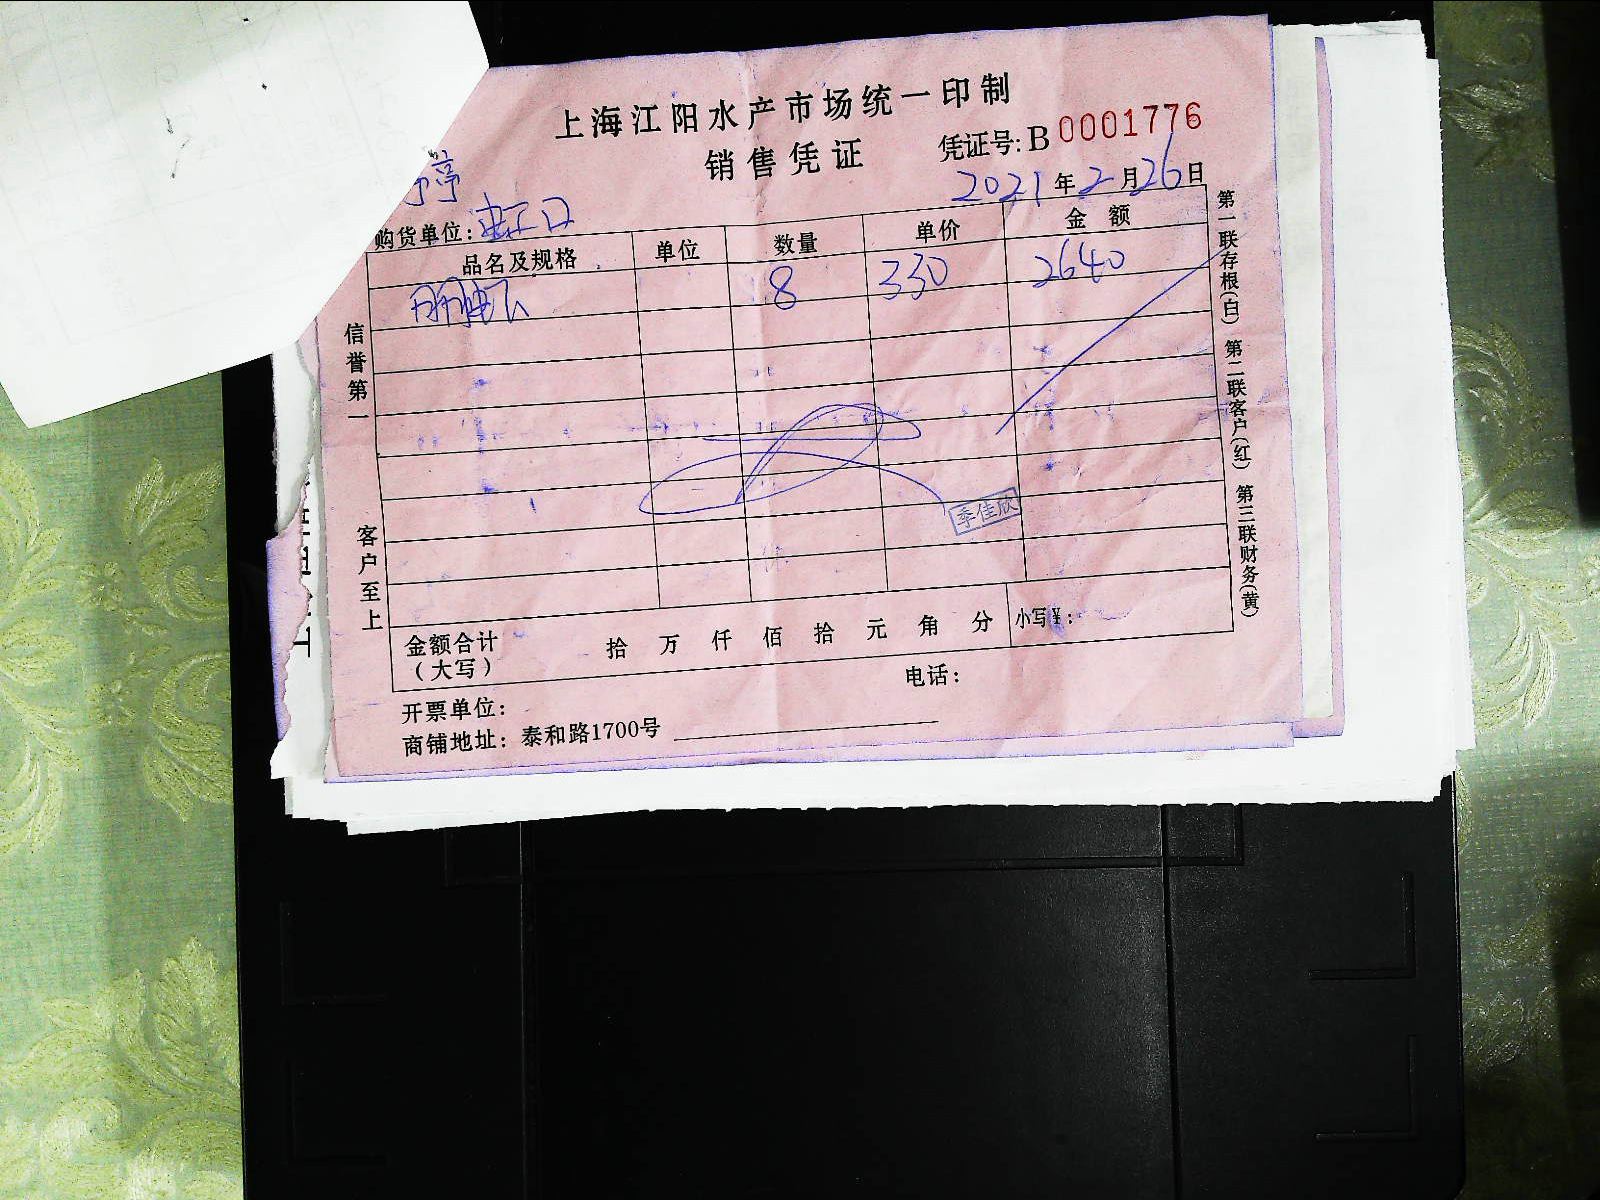 上海江阳水产市场统一印制
销售凭证
凭证号: B 0001776
2021年2月26日
亭
购货单位: 虹口
品名及规格 单位 数量 单价 金额
8 330 2640
信誉第一 客户至上
季佳欣
金额合计(大写) 拾 万 仟 佰 拾 元 角 分 小写¥:
电话:
开票单位:
商铺地址: 泰和路1700号
第一联存根(白) 第二联客户(红) 第三联财务(黄)